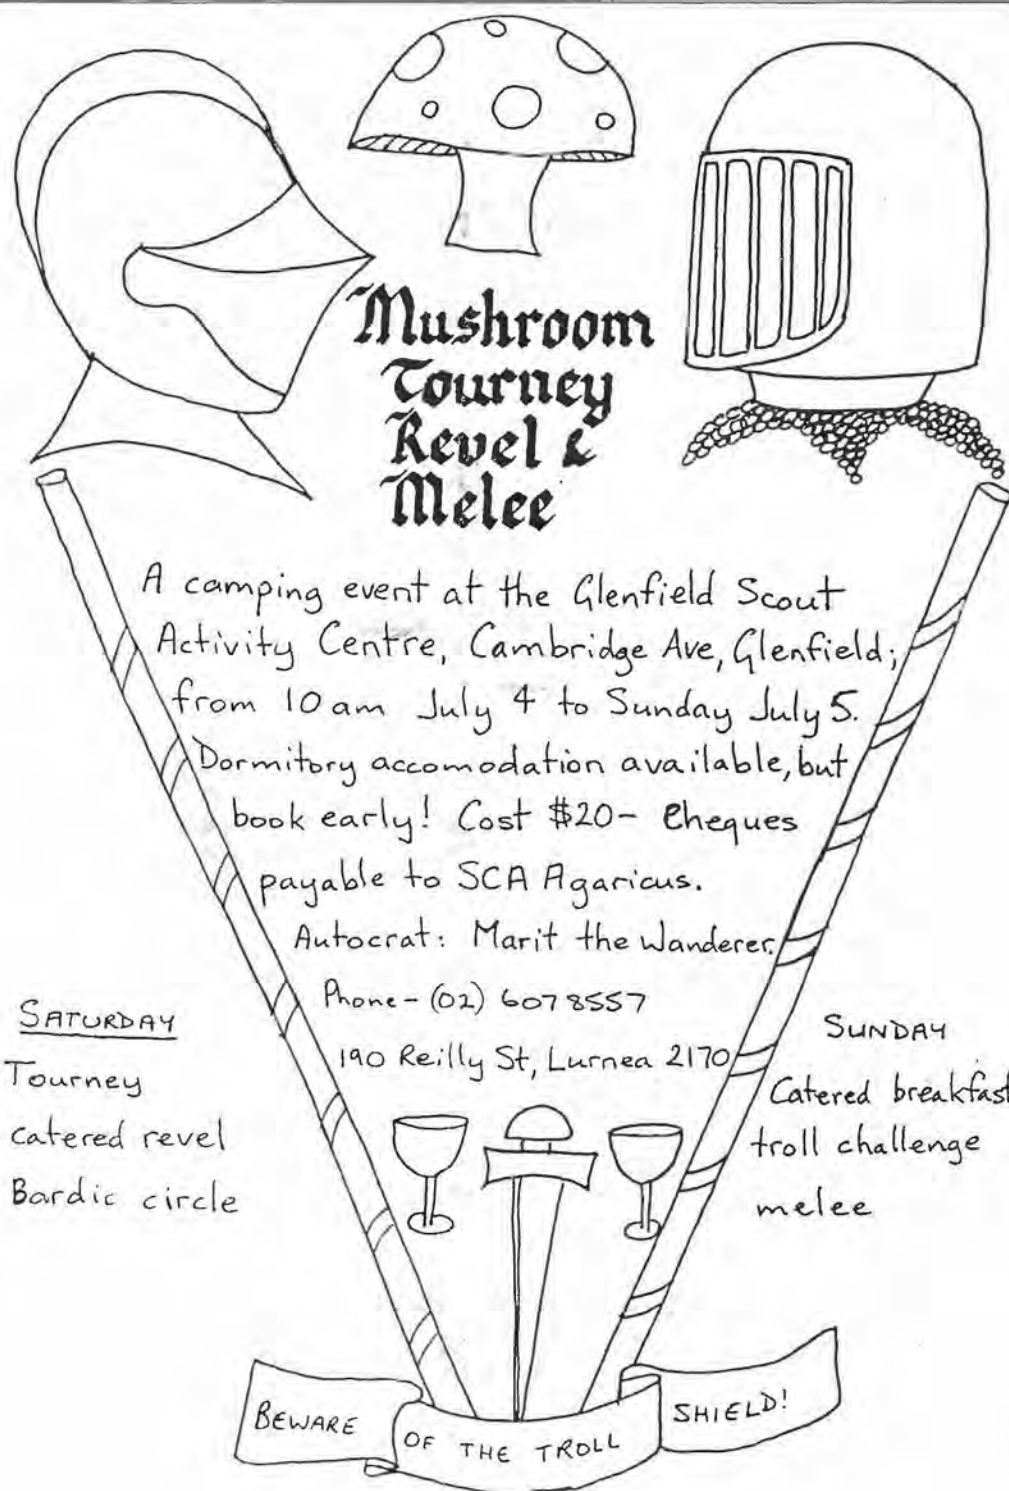 Mushroom
Tourney
Revel &
Melee
A camping event at the Glenfield Scout
Activity Centre, Cambridge Ave, Glenfield;
from 10am July 4 to Sunday July 5.
Dormitory accomodation available, but
book early! Cost $20- Cheques
payable to SCA Agaricus.
Autocrat: Marit the Wanderer.
Phone - (02) 607 8557
190 Reilly St, Lurnea 2170
SATURDAY
Tourney
catered revel
Bardic circle
SUNDAY
Catered breakfast
troll challenge
melee
BEWARE OF THE TROLL SHIELD!